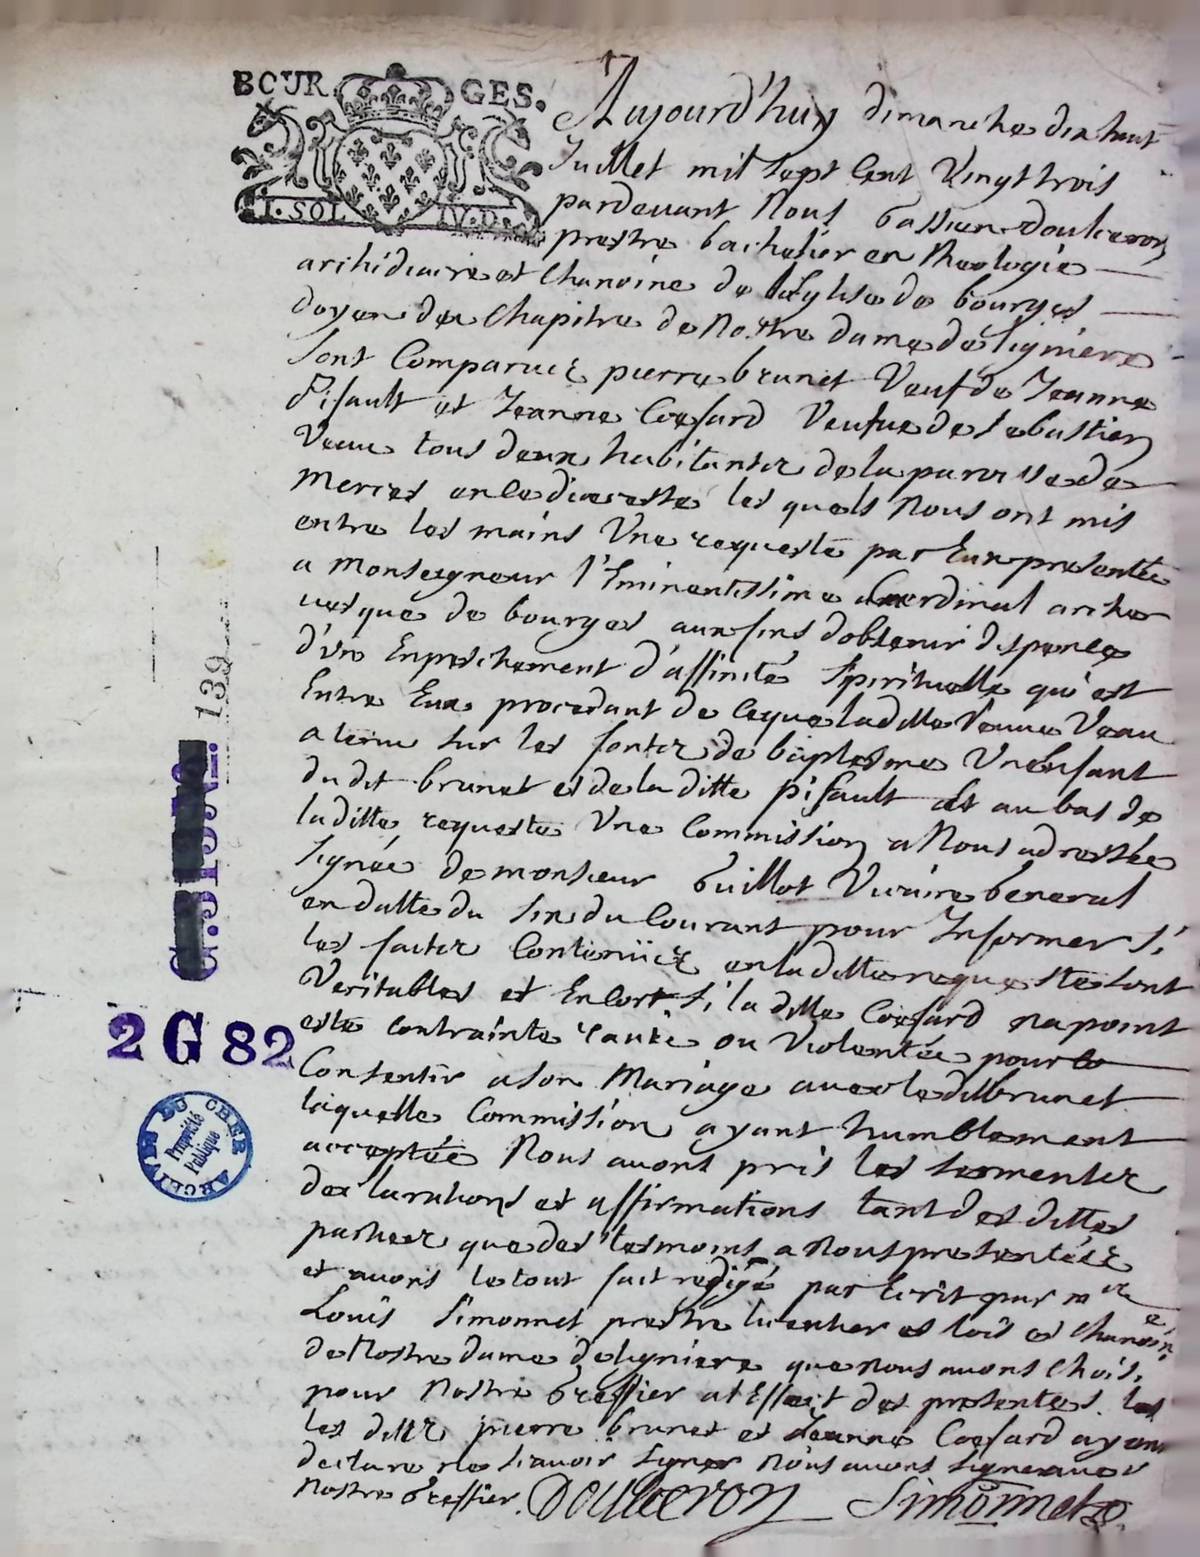 BOUR GES.
I. SOL IV. D.
Aujourd'huy dimanche dix huit
Juillet mil sept Cent Vingt trois
pardevant Nous Gassien doulceron
prestre bachelier en theologie
archidiacre et Chanoine de L'Eglise de bourges
doyen du Chapitre de Nostre dame de ligniere
sont Comparuz pierre brunet Veuf de Jeanne
Pifault et Jeanne Coefard Veufue de sebastien
Veau tous deux habitantz de la paroisse de
en ce diocesse les quels Nous ont mis
entre les mains Une requeste par Eux presentée
a Monseigneur l'Eminentissime Cardinal arche
uesque de bourges aux fins dobtenir dispence
d'un Enpeschement d'affinité spirituelle qui est
Entre Eux procedant de ceque ladite Veuue Veau
a tenu sur les fontz de baptesme Un Enfant
du dit brunet et de la ditte pifault et au bas de
laditte requeste Une Commission a Nous adressée
signée de monsieur Guillot Vicaire General
en datte du six du Courant pour Informer si
les faitz Contenüz en la ditte requeste sont
Veritables et Encore si la ditte Coefard na point
esté contrainte ou Violentée pour
Consentir a son Mariage auec ledit brunet
laquelle Commission ayant humblement
acceptée Nous auons pris les sermentz
declarations et affirmations tant des dittes
parties que des tesmoins a Nous presentéz
et auons le tout fait redigé par Ecrit par mre
Louis Simonnet prestre licentier es lois et chanoine
de Nostre dame de ligniere que nous auons choisi
pour Nostre Greffier a l'Effait des presentes
les ditz pierre brunet et Jeanne Coefard ayant
declare ne scauoir signer Nous auons signe auec
Nostre Greffier. Doulceron Simonnet
139
2 G 82
ARCHIVES DU CHER
Propriété
Publique